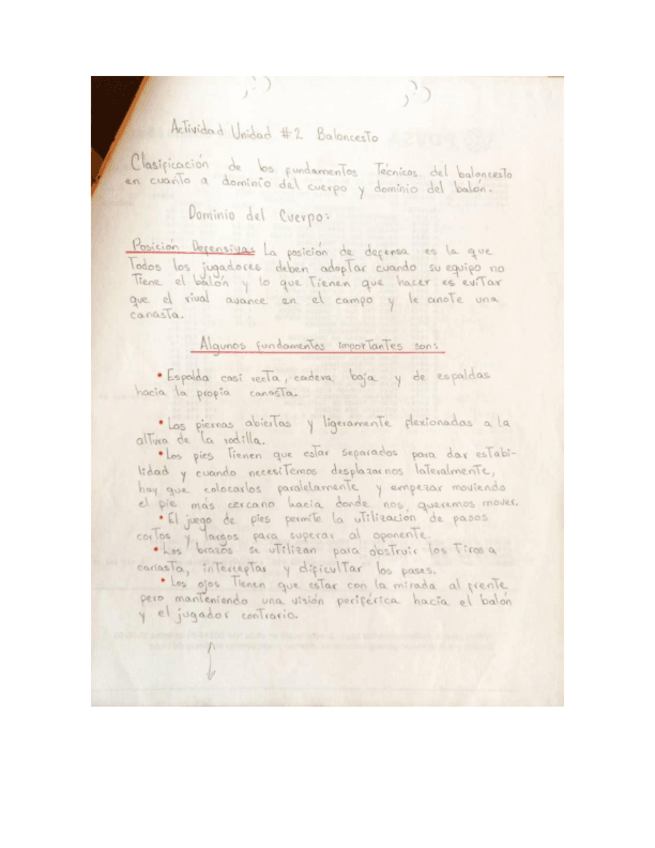 Actividad Unidad #2 Baloncesto
Clasificación de los fundamentos Técnicos del baloncesto
en cuanto a dominio del cuerpo y dominio del balón.
Dominio del Cuerpo:
Posición Defensiva: La posición de defensa es la que
Todos los jugadores deben adoptar cuando su equipo no
Tiene el balón y lo que Tienen que hacer es evitar
que el rival avance en el campo y le anote una
canasta.
Algunos fundamentos importantes son:
• Espalda casi recta, cadera baja y de espaldas
hacia la propia canasta.
• Las piernas abiertas y ligeramente flexionadas a la
altura de la rodilla.
• Los pies Tienen que estar separados para dar estabi-
lidad y cuando necesitemos desplazarnos lateralmente,
hay que colocarlos paralelamente y empezar moviendo
el pie más cercano hacia donde nos, queremos mover.
• El juego de pies permite la utilización de pasos
cortos y largos para superar al oponente.
• Los brazos se utilizan para obstruir los Tiros a
canasta, interceptar y dificultar los pases.
• Los ojos Tienen que estar con la mirada al frente
pero manteniendo una visión periférica hacia el balón
y el jugador contrario.